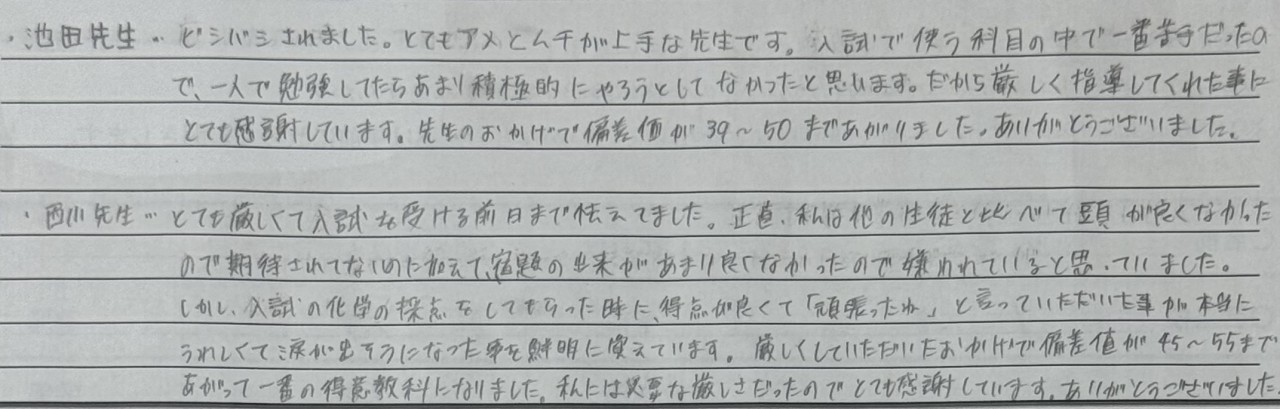 ・池田先生… ビシバシされました。とてもアメとムチが上手な先生です。入試で使う科目の中で一番苦手だったの
で、一人で勉強してたらあまり積極的にやろうとしてなかったと思います。だから厳しく指導してくれた事に
とても感謝しています。先生のおかげで偏差値が39～50まであがりました。ありがとうございました。
・西川先生… とても厳しくて入試を受ける前日まで怯えてました。正直、私は他の生徒と比べて頭が良くなかった
ので期待されてないのに加えて、宿題の出来があまり良くなかったので嫌われていると思っていました。
しかし、入試の化学の採点をしてもらった時に、得点が良くて「頑張ったね」と言っていただいた事が本当に
うれしくて涙が出そうになった事を鮮明に覚えています。厳しくしていただいたおかげで偏差値が45～55まで
あがって一番の得意教科になりました。私には必要な厳しさだったのでとても感謝しています。ありがとうございました